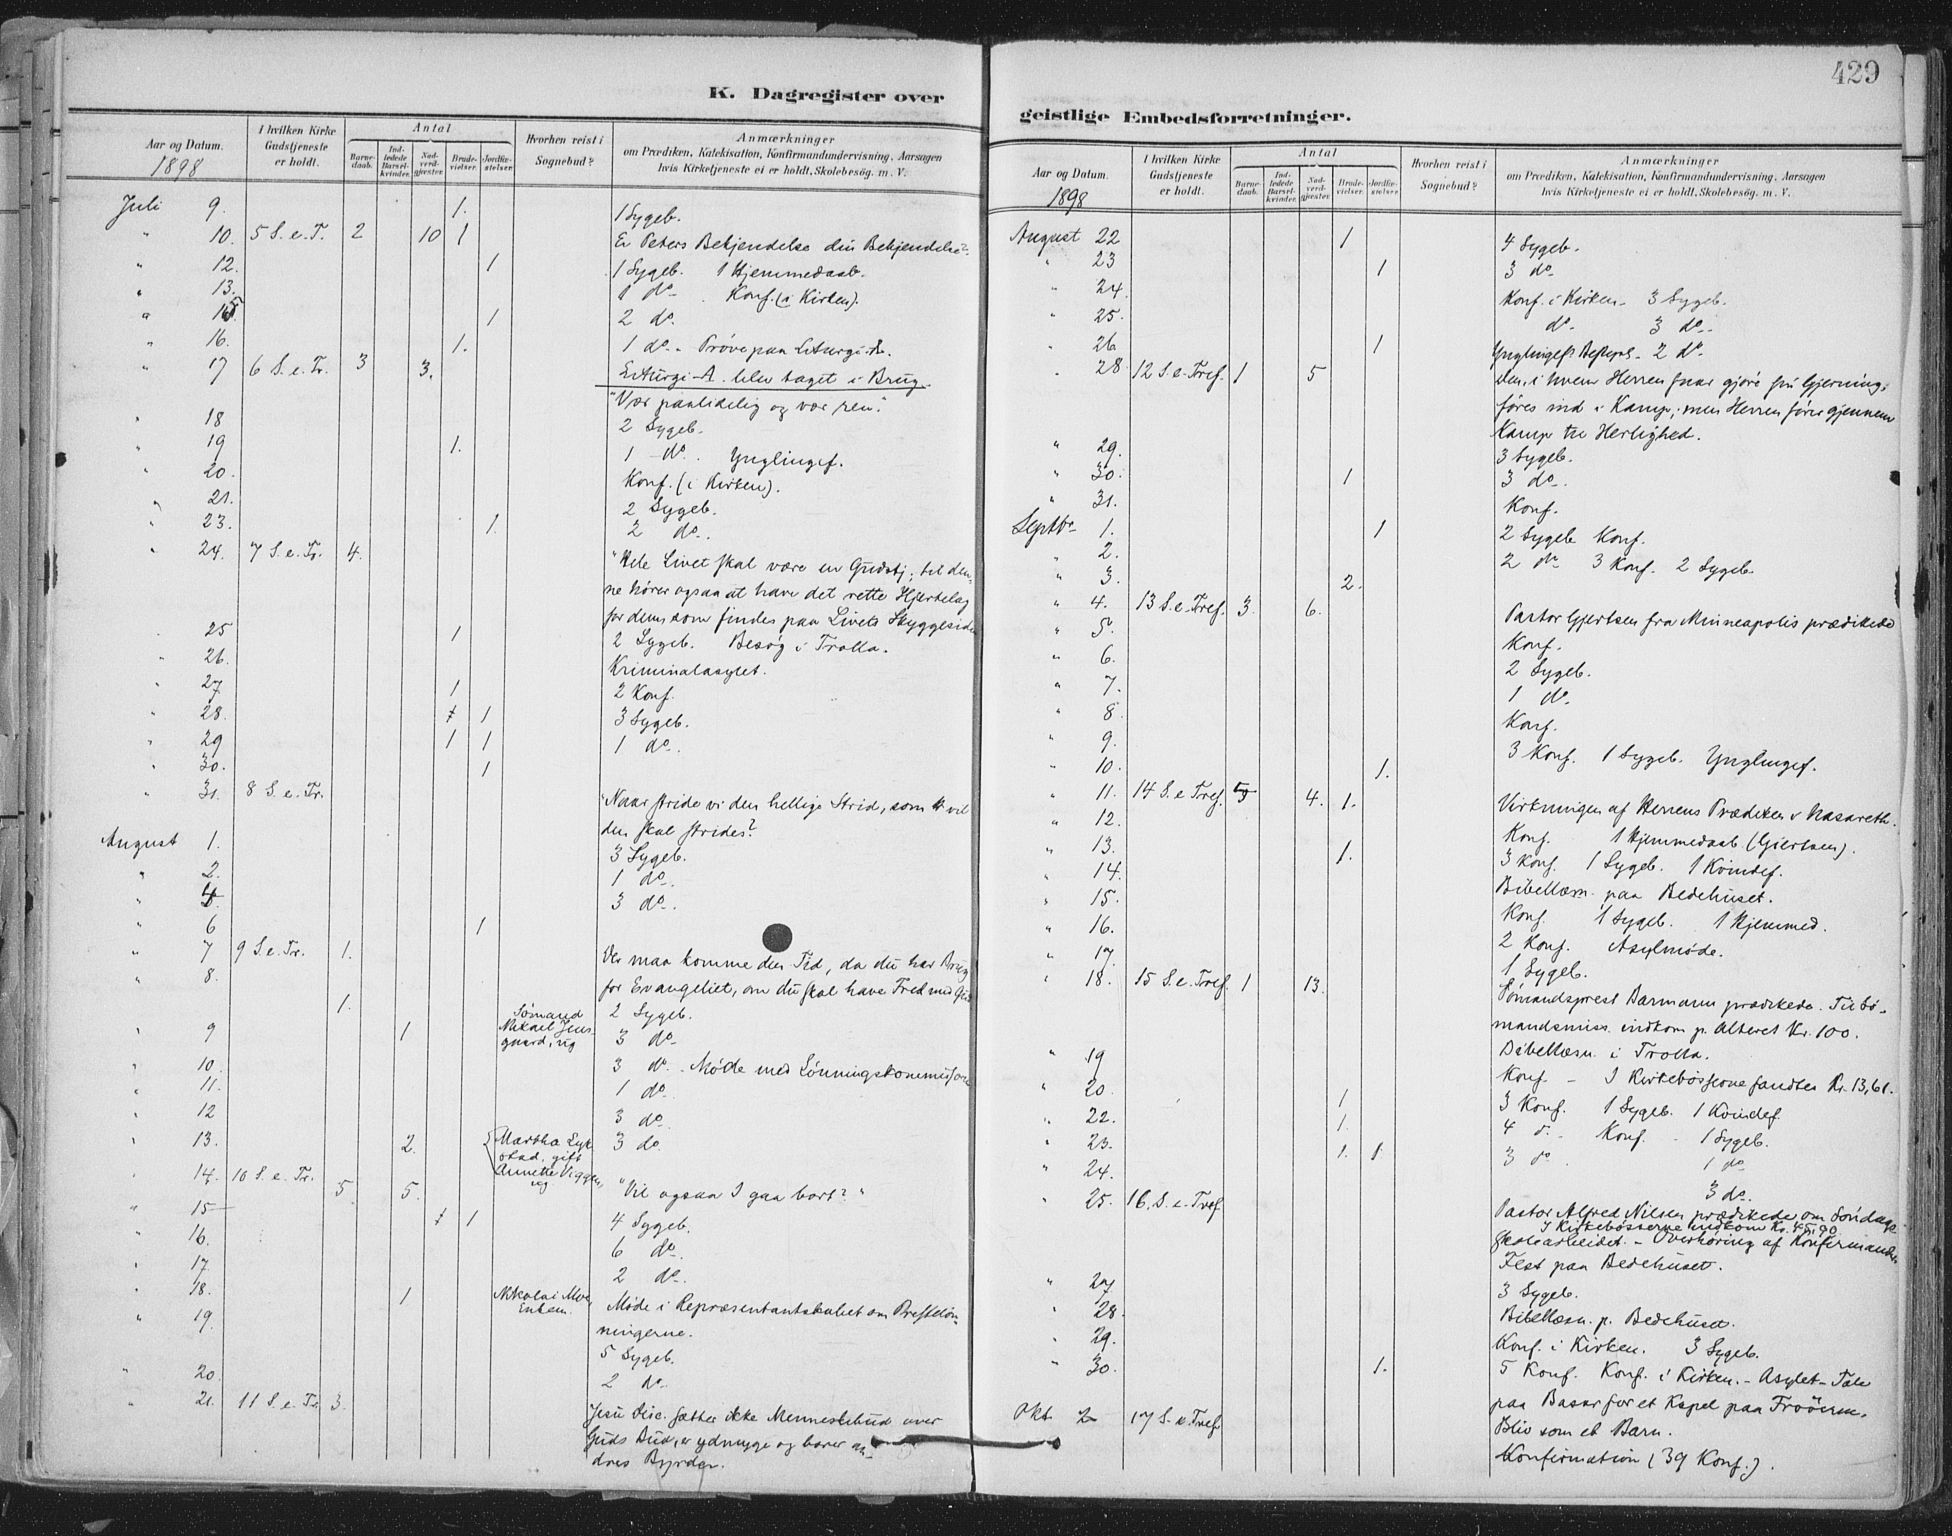 429
K. Dagregister over
Aar og Datum.
1898
I hvilken Kirke Gudstjeneste er holdt.
Antal
Barnedaab.
Indledede Barselkvinder.
Nadverdgjæster.
Brudevielser.
Jordfæstelser.
Hvorhen reist i Sognebud?
Anmærkninger
om Prædiken, Katekisation, Konfirmandundervisning, Aarsagen
hvis Kirketjeneste ei er holdt, Skolebesøg. m. V.
Juli 9. 1. 1 Sygeb.
" 10. 5 S. e. T. 2 10 1 Er Peters Bekjendelse din Bekjendelse?
" 12. 1 1 Sygeb. 1 Hjemmedaab.
" 13. 1 do. Konf. (i Kirken).
" 15 1 2 do.
" 16. 1. 1 do. Prøve paa Liturgi
" 17 6 S. e. Tr. 3 3. Liturgi A. blev taget i Brug.
"Vær paalidelig og vær ren."
" 18 2 Sygeb.
" 19 1. 1 do. Ynglingef.
" 20. Konf. (i Kirken).
" 21. 2 Sygeb.
" 23. 1. 2 do.
" 24. 7 S. e. Tr. 4. "Hele Livet skal være en Gudstj.; til den-
ne hører ogsaa at have det rette Hjertelag
for dem som findes paa Livets Skyggeside
" 25 1 2 Sygeb. Besøg i Trolla.
" 26. Kriminalasylet.
" 27 1 2 Konf.
" 28. 1 3 Sygeb.
" 29 1 1 1 do.
" 30. 1
" 31. 8 S. e. Tr. "Naar stride vi den hellige Strid, som vil
den skal strides?
August 1. 3 Sygeb.
" 2. 1 do.
" 3 do.
" 6 1
" 7 9 S. e. Tr. 1. Der maa komme den Tid, da du har Brug
for Evangeliet, om du skal have Fred med Gud
" 8. 1. 2 Sygeb.
" 9 1 Sømand Mikael 3 do.
" 10. 3 do. Møde med Lønningskommissionen
" 11. 1 do.
" 12 3 do.
" 13. 2. Martha gift Annette Viggen, ug 3 do.
" 14. 10 S. e. Tr. 5 5. "Vil ogsaa I gaa bort?"
" 15 1 4 Sygeb.
" 16. 6 do.
" 17. 2 do.
" 18. 1 Nikolai Moe, Enkem. Møde i Repræsentantskabet om Prestløn-
ningerne.
" 19. 5 Sygeb.
" 20. 2 do.
" 21. 11 S. e. Tr. 3. Jesu Disc. sætter ikke Menneskebud over
Guds Bud, er ydmyge og bærer an-
dres Byrder.
geistlige Embedsforretninger.
Aar og Datum.
1898
I hvilken Kirke Gudstjeneste er holdt.
Antal
Barnedaab.
Indledede Barselkvinder.
Nadverdgjæster.
Brudevielser.
Jordfæstelser.
Hvorhen reist i Sognebud?
Anmærkninger
om Prædiken, Katekisation, Konfirmandundervisning, Aarsagen
hvis Kirketjeneste ei er holdt, Skolebesøg. m. V.
August 22 1 4 Sygeb.
" 23 1 3 do.
" 24. Konf. i Kirken 3 Sygeb.
" 25. do. 3 do.
" 26 1 Ynglingef. 2 do.
" 28 12 S. e. Tref. 1 5 Den, i hvem Herren faar gjøre sin Gjerning,
føres ind i Kamp; men Herren fører gjennem
Kamp til Herlighed.
" 29. 3 Sygeb.
" 30. 1 3 do.
" 31. Konf.
Septbr 1. 1 2 Sygeb. Konf.
" 2. 2 do. 3 Konf. 2 Sygeb.
" 3. 2.
" 4. 13 S. e. Tref. 3. 6. Pastor Gjertsen fra Minneapolis prædikede
" 5. Konf.
" 6. 2 Sygeb.
" 7. 1 do.
" 8. Konf.
" 9. 3 Konf. 1 Sygeb. Ynglingef.
" 10. 1.
" 11. 14 S. e Tref. 5 4. 1. Virkningen af Herrens Prædiken i Nasareth.
" 12. Konf. 1 Hjemmedaab (Gjertsen).
" 13. 1. 3 Konf. 1 Sygeb. 1 Kvindef.
" 14. Bibellæsn. paa Bedehuset.
" 15. Konf. 1 Sygeb. 1 Hjemmed.
" 16. 2 Konf. Asylmøde.
" 17. 1 Sygeb.
" 18. 15 S. e. Tref 1 13. Sømandsprest Barmann prædikede. Til Sø-
mandsmiss. indkom p. Alteret Kr. 100.
" 19 Bibellæsn. i Trolla.
" 20. 1 Konf. - I Kirkebøsserne fandtes Kr. 13,61.
" 22. 1. 3 Konf. 1 Sygeb. 1 Kvindef.
" 23. 1. 1. 4 do. Konf. 1 Sygeb.
" 24. 3 do. 1 do.
3 do.
" 25. 16. S. e. Tref. Pastor Alfred Nilsen prædikede om Søndags-
I Kirkebøsserne indkom Kr.
skolearbeidet. - Overhøring af Konfirmander
Fest paa Bedehuset.
" 27 3 Sygeb.
" 28. Bibellæsn. p. Bedehuset.
" 29. Konf. i Kirken. 3 Sygeb.
" 30. 1. 5 Konf. Konf. i Kirken. - Asylet - Tale
paa Basar for et Kapel paa Frøöerne.
Okt 2 17 S. e. Tref Bliv som et Barn.
Konfirmation (39 Konf.).